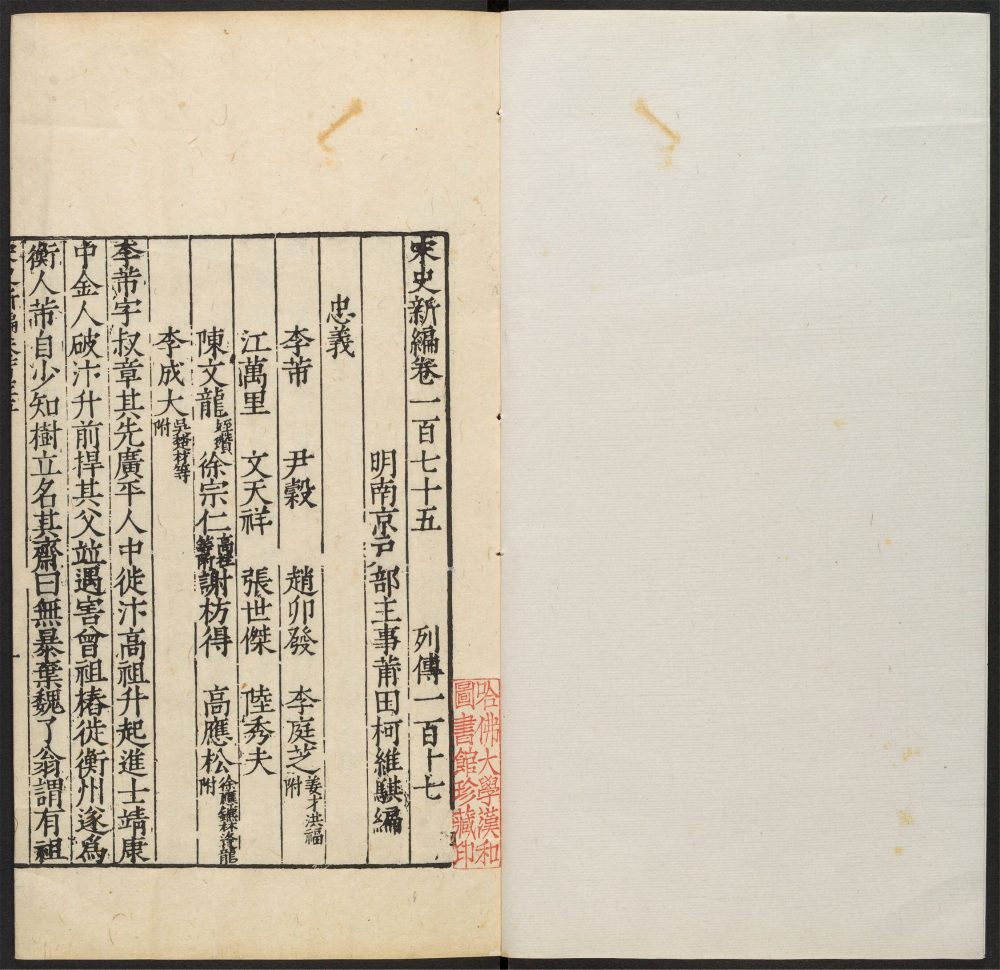 宋史新編卷一百七十五　列傳一百十七
明南京戶部主事莆田柯維騏編
忠義
李芾　尹穀　趙卯發　李庭芝姜才洪福附
江萬里　文天祥　張世傑　陸秀夫
陳文龍姪瓚　徐宗仁　謝枋得　高應松徐應鑣林逢龍附
李成大吳楚材等附
李芾字叔章其先廣平人中徙汴高祖升起進士靖康
中金人破汴升前捍其父竝遇害曾祖椿徙衡州遂爲
衡人芾自少知樹立名其齋曰無暴棄魏了翁謂有祖
哈佛大學漢和
圖書館珍藏印